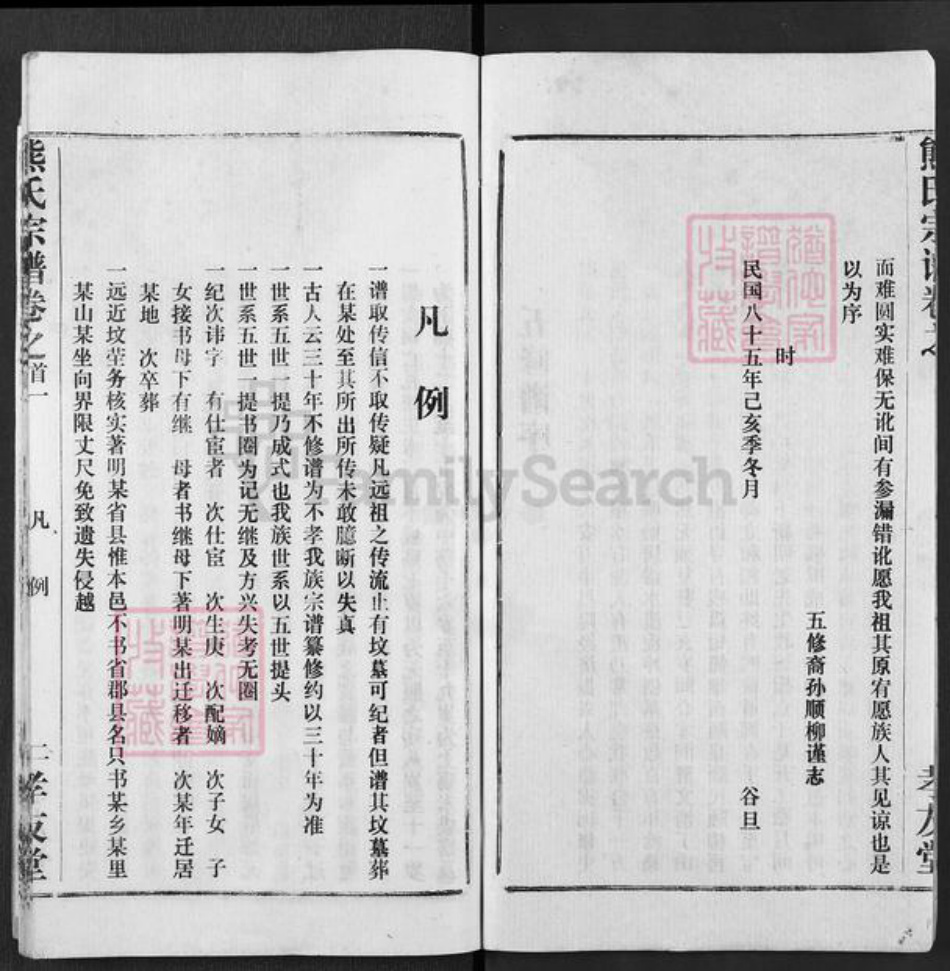 面难圆实难保无讹间有参漏错讹愿我祖其原宥愿族人其见谅也是
以为序
五修裔孙顺柳谨志
时
民国八十五年己亥季冬月 谷旦
凡例
一谱取传信不取传疑凡远祖之传流止有坟墓可纪者但谱其坟墓葬
在某处至其所出所传未敢臆断以失真
一古人云三十年不修谱为不孝我族宗谱纂修约以三十年为准
一世系五世一提乃成式也我族世系以五世提头
一世系五世一提书圈为记无继及方兴失考无圈
一纪次讳字 有仕宦者 次仕宦 次生庚 次配嫡 次子女 子
女接书母下有继 母者书继母下著明某出迁移者 次某年迁居
某地 次卒葬
一远近坟茔务核实著明某省县惟本邑不书省郡县名只书某乡某里
某山某坐向界限丈尺免致遗失侵越
熊氏宗谱卷之首一 凡例 一孝友堂
FamilySearch